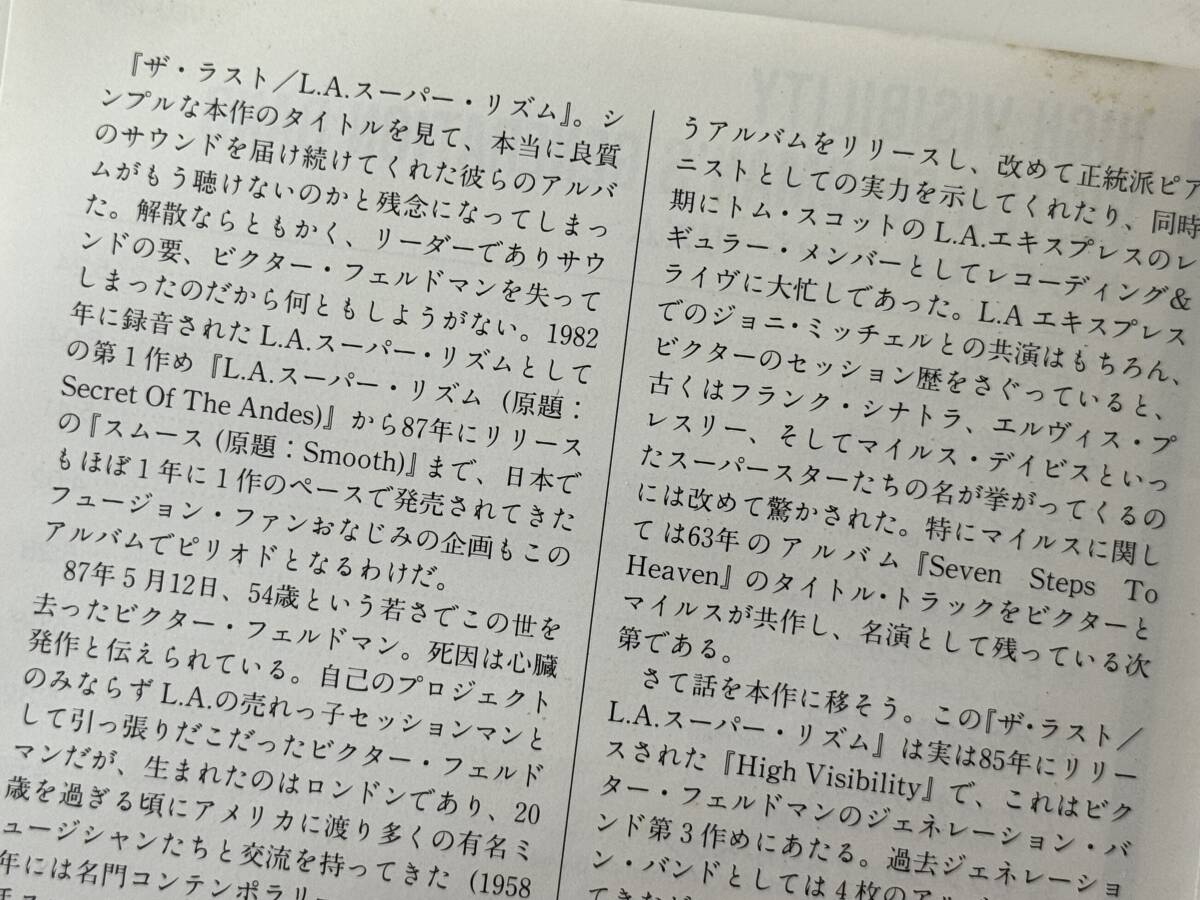 『ザ・ラスト／L.A.スーパー・リズム』。シ
ンプルな本作のタイトルを見て、本当に良質
のサウンドを届け続けてくれた彼らのアルバ
ムがもう聴けないのかと残念になってしまっ
た。解散ならともかく、リーダーでありサウ
ンドの要、ビクター・フェルドマンを失って
しまったのだから何ともしようがない。1982
年に録音されたL.A.スーパー・リズムとして
の第1作め『L.A.スーパー・リズム (原題：
Secret Of The Andes)』から87年にリリース
の『スムース (原題：Smooth)』まで、日本で
もほぼ1年に1作のペースで発売されてきた
フュージョン・ファンおなじみの企画もこの
アルバムでピリオドとなるわけだ。
87年5月12日、54歳という若さでこの世を
去ったビクター・フェルドマン。死因は心臓
発作と伝えられている。自己のプロジェクト
のみならずL.A.の売れっ子セッションマンと
して引っ張りだこだったビクター・フェルド
マンだが、生まれたのはロンドンであり、20
歳を過ぎる頃にアメリカに渡り多くの有名ミ
ュージシャンたちと交流を持ってきた (1958
年には名門コンテンポラリ
うアルバムをリリースし、改めて正統派ピア
ニストとしての実力を示してくれたり、同時
期にトム・スコットのL.A.エキスプレスのレ
ギュラー・メンバーとしてレコーディング&
ライヴに大忙しであった。L.A エキスプレス
でのジョニ・ミッチェルとの共演はもちろん、
ビクターのセッション歴をさぐっていると、
古くはフランク・シナトラ、エルヴィス・プ
レスリー、そしてマイルス・デイビスといっ
たスーパースターたちの名が挙がってくるの
には改めて驚かされた。特にマイルスに関し
ては63年のアルバム『Seven Steps To
Heaven』のタイトル・トラックをビクターと
マイルスが共作し、名演として残っている次
第である。
さて話を本作に移そう。この『ザ・ラスト／
L.A.スーパー・リズム』は実は85年にリリー
スされた『High Visibility』で、これはビク
ター・フェルドマンのジェネレーション・バ
ンド第3作めにあたる。過去ジェネレーショ
ン・バンドとしては4枚のアル